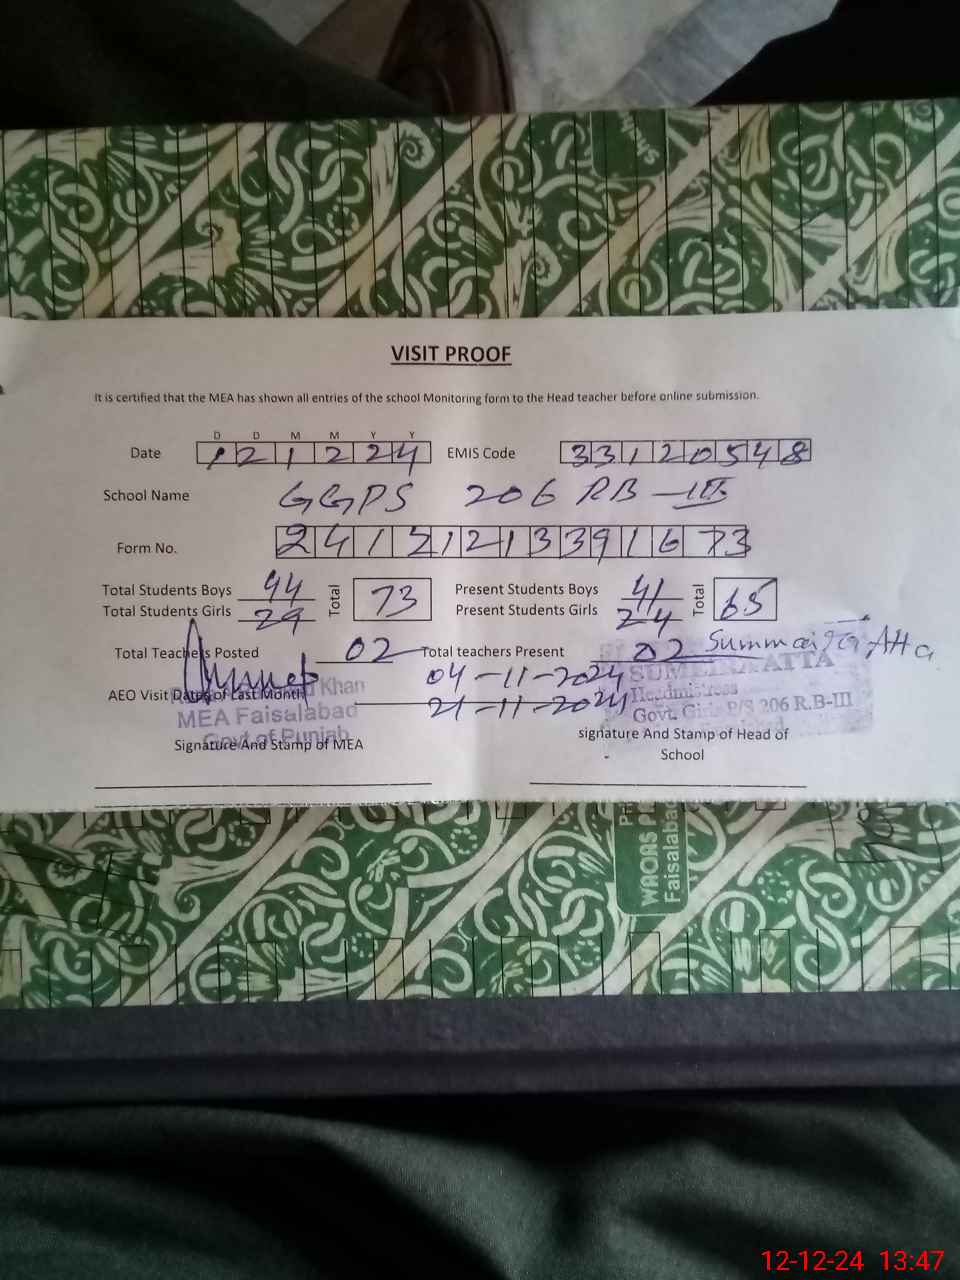 VISIT PROOF
It is certified that the MEA has shown all entries of the school Monitoring form to the Head teacher before online submission.
D D M M Y Y
Date 12 12 24 EMIS Code 33120548
School Name GGPS 206 RB-III
Form No. 24121213391673
Total Students Boys 44 Total 73 Present Students Boys 41 Total 65
Total Students Girls 29 Present Students Girls 24
Total Teachers Posted 02 Total teachers Present 02 Summaira Atta
AEO Visit Dates of Last Month 04-11-2024
21-11-2024
Khan
MEA Faisalabad
Govt of Punjab
ATTA
Headmistress
Govt. Girls P/S 206 R.B-III
Signature And Stamp of MEA
signature And Stamp of Head of
School
WAQAS
Faisalabad
12-12-24 13:47